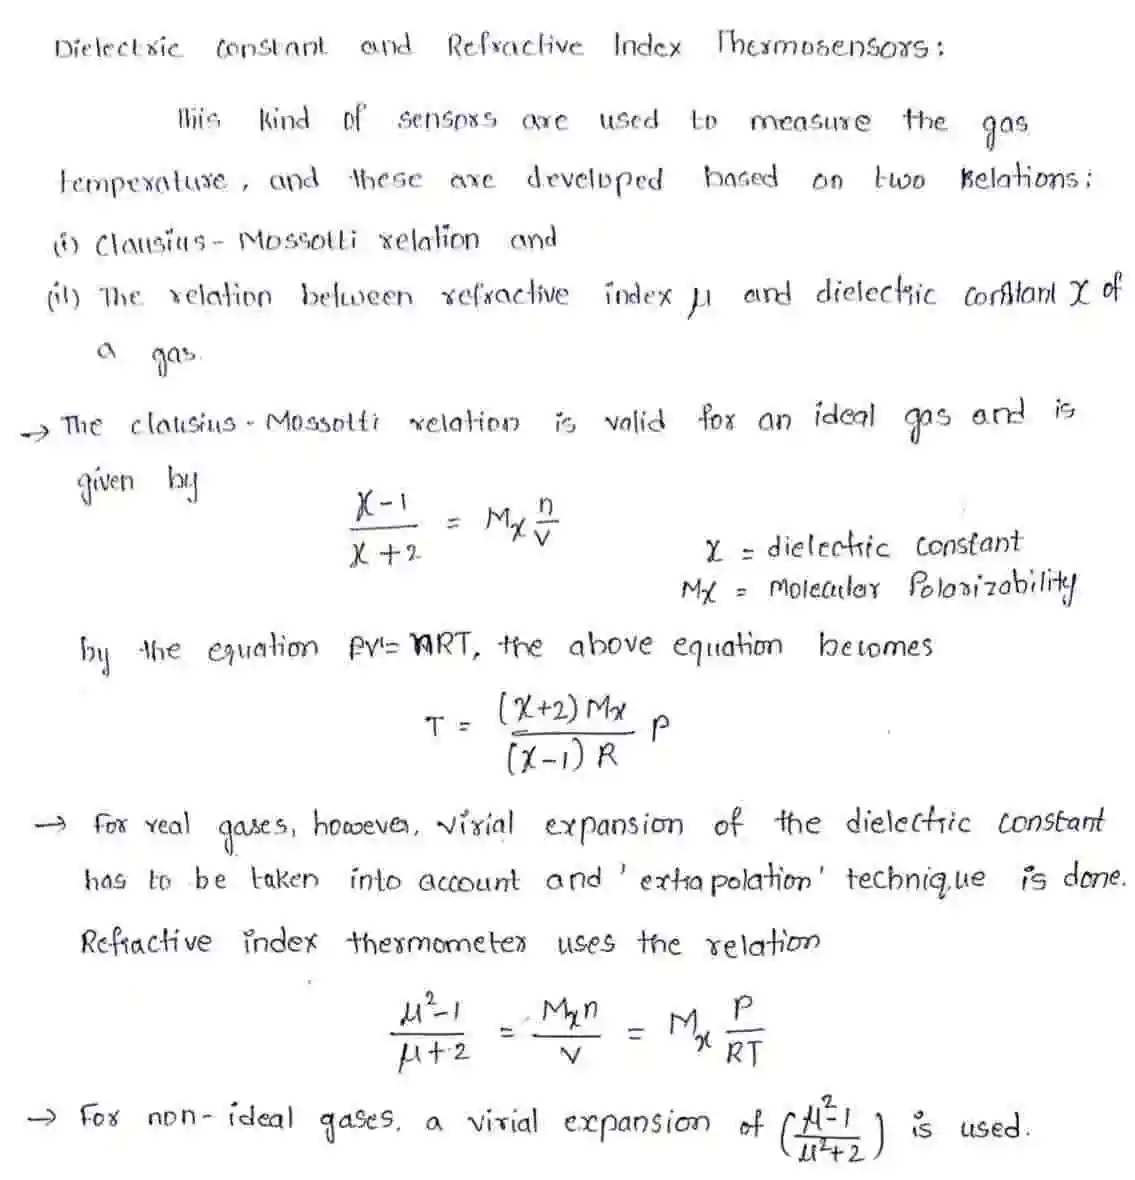 Dielectric constant and Refractive Index Thermosensors:
This kind of sensors are used to measure the gas
temperature, and these are developed based on two Relations:
(i) Clausius - Mossotti relation and
(ii) The relation between refractive index μ and dielectric constant χ of
a gas.
→ The clausius - Mossotti relation is valid for an ideal gas and is
given by
(χ-1)/(χ+2) = Mχ n/V
χ = dielectric constant
Mχ = Molecular Polarizability
by the equation PV = nRT, the above equation becomes
T = ((χ+2) Mχ)/((χ-1) R) P
→ For real gases, however, virial expansion of the dielectric constant
has to be taken into account and 'extrapolation' technique is done.
Refractive index thermometer uses the relation
(μ²-1)/(μ+2) = Mχn/V = Mχ P/RT
→ For non-ideal gases, a virial expansion of ((μ²-1)/(μ²+2)) is used.